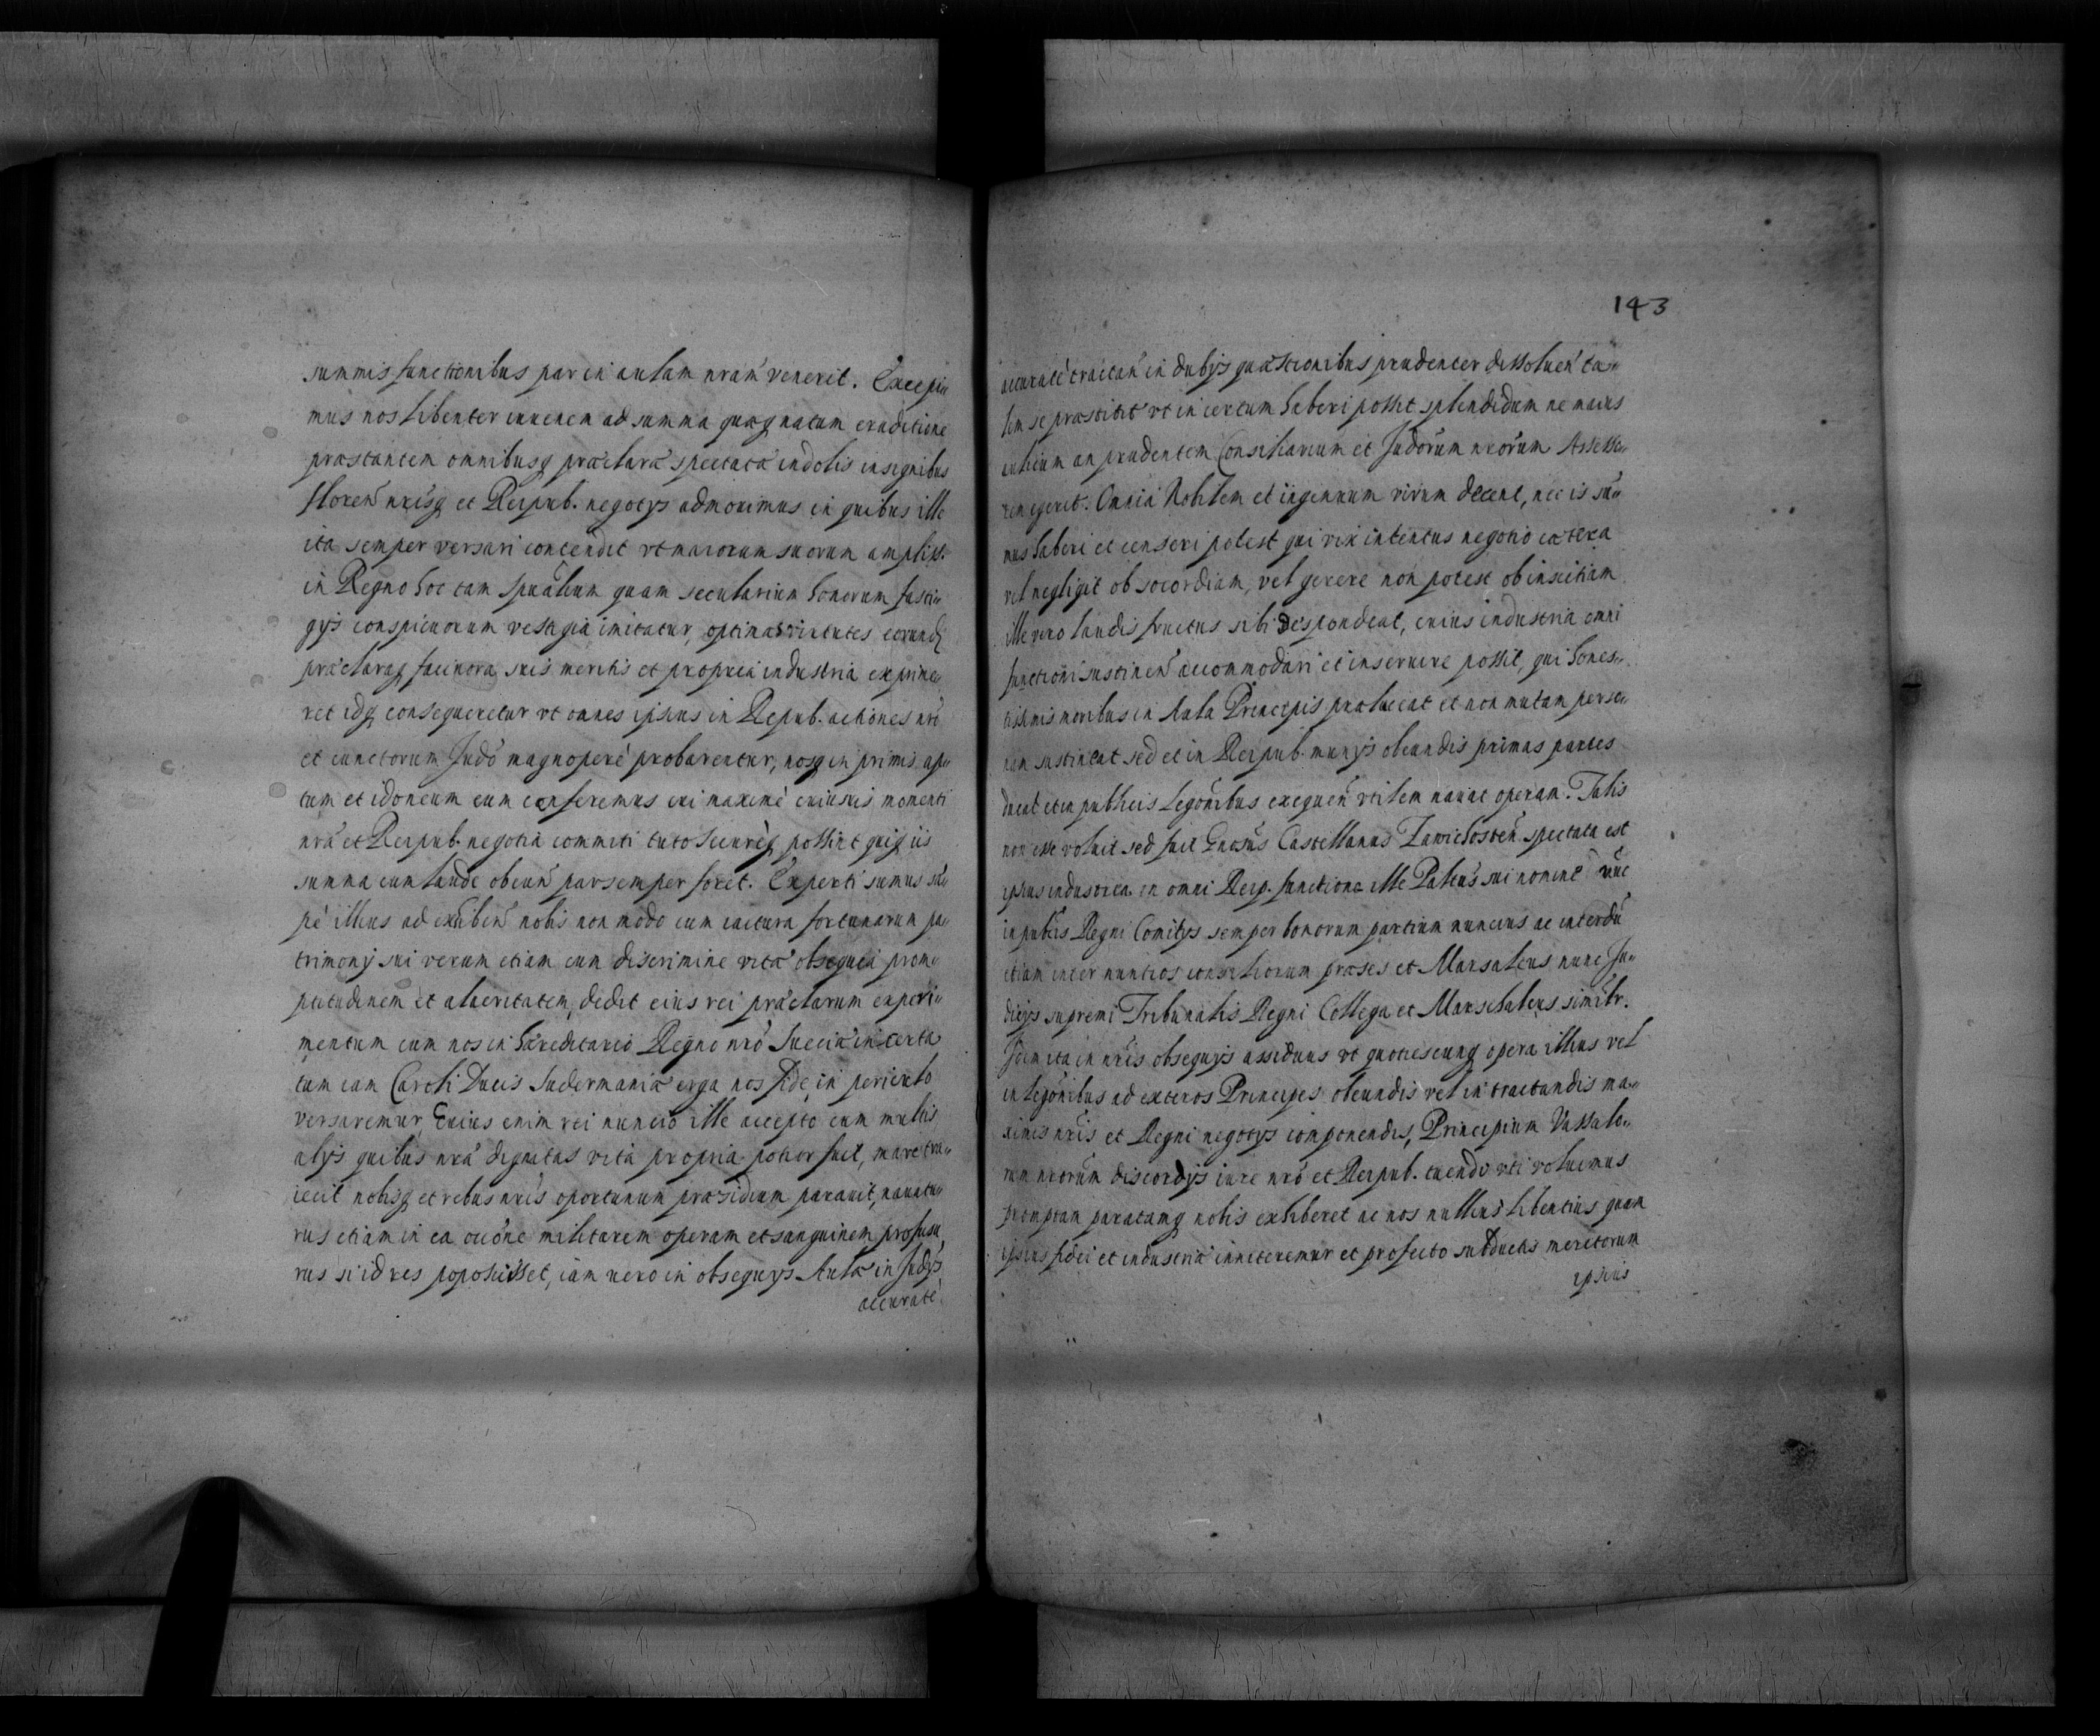 summis functionibus par in aulam nram venerit. Excepi„
mus nos libenter iuuenem ad summa quæq natum eruditione
præstantem omnibusq præclaræ spectatæ indolis insignibus
floren nrisq et Reipub. negotys admouimus in quibus ille
ita semper versari contendit vt maiorum suorum ampliss:
in Regno hoc tam spualium quam secularium honorum fasti„
gys conspicuorum vestigia imitatur, optimas virtutes eorund
præclaraq facinora suis meritis et propria industria exprime„
ret idq consequeretur vt omnes ipsius in Repub. actiones nro
et cunctorum Judo magnoperè probarentur, nosq in primis ap„
tum et idoneum eum censeremus cui maximè cuiusuis momenti
nra et Reipub. negotia committi tuto securèq possint quiq iis
summa cum laude obeun par semper foret. Experti sumus sæ„
pè illius ad exhiben nobis non modo cum iactura fortunarum pa„
trimony sui verum etiam cum discrimine vitæ obsequia prom„
ptitudinem et alacritatem, dedit eius rei præclarum experi„
mentum cum nos in hæreditario Regno nro Sueciæ incerta
tum iam Caroli Ducis Sudermaniæ erga nos fide, in periculo
versaremur, Cuius enim rei nuncio ille accepto cum multis
alys quibus nra dignitas vita propria potior fuit, mare tra„
iecit nobisq et rebus nris oportunum præsidium parauit, nauatu„
rus etiam in ea occone militarem operam et sanguinem profusu„
rus si id res poposcisset, iam uero in obsequys Aulæ in Judys
accuratè
143
accuratè tractan in dubys quæstionibus prudenter dissoluen ta„
lem se præstitit vt incertum haberi posset splendidum ne magis
aulicum an prudentem Consiliarium et Judorum nrorum Assesso„
rem egerit. Omnia Nobilem et ingenuum virum decent, nec is sum„
mus haberi et censeri potest qui vix intentus negotio cætera
vel negligit ob socordiam, vel gerere non potest ob inscitiam
ille vero laudis fructus sibi despondeat, cuius industria omni
functioni sustinen accommodari et inseruire possit, qui hones„
tissimis moribus in Aula Principis præluceat et non mutam perso„
nam sustineat sed et in Reipub. munys obeundis primas partes
ducat et in publicis Legonibus exequen vtilem nauat operam. Talis
non esse voluit sed fuit Gnosus Castellanus Zawichosten. spectata est
ipsius industria in omni Reip. functione ille Palnus sui nomine nunc
in publis Regni Comitys semper bonorum partium nuncius ac interdu
etiam inter nuntios consiliorum præses et Marsalcus nunc Ju„
dicys supremi Tribunalis Regni Collega et Marschalcus similr.
Idem ita in nris obsequys assiduus vt quotiescunq opera illius vel
in legonibus ad exteros Principes obeundis vel in tractandis ma„
ximis nris et Regni negotys componendis, Principium Vassalo„
rum nrorum discordys iure nro et Reipub. tuendo vti voluimus
promptam paratamq nobis exhiberet ac nos nullius libentius quam
ipsius fidei et industriæ inniteremur et profecto subductis meritorum
ipsius